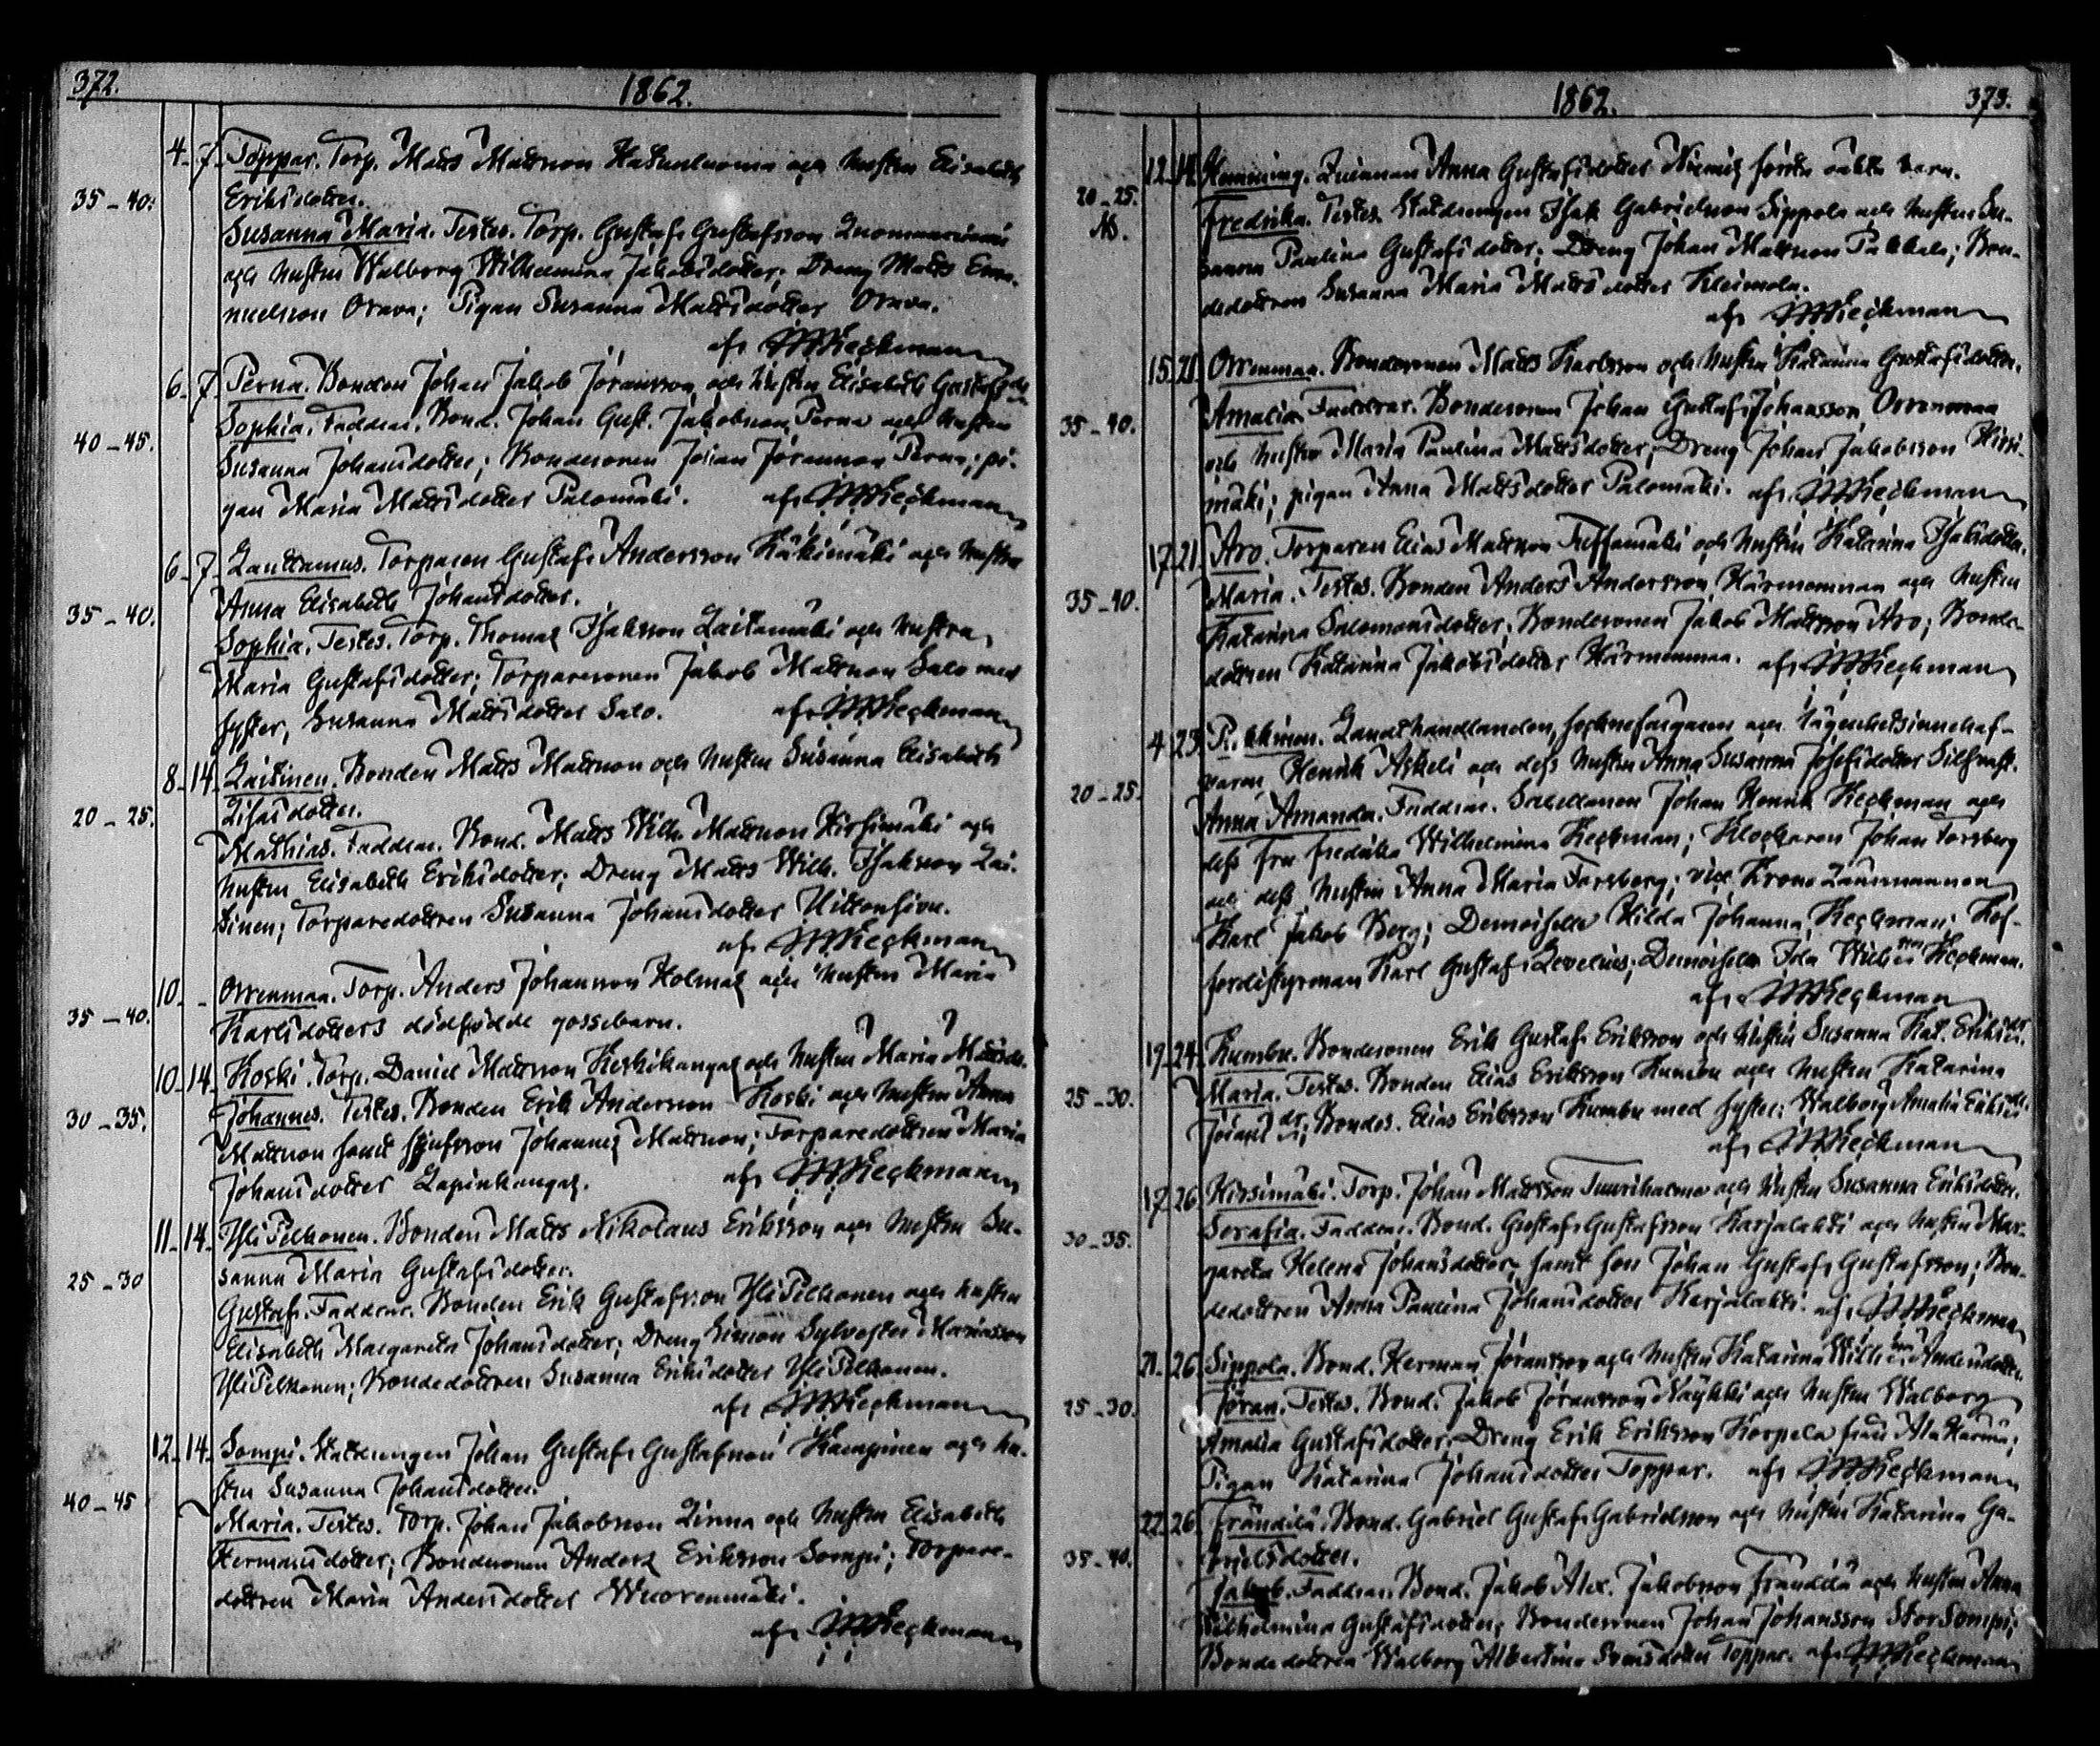 372.
1862.
4. 7. Toppar. Torp. Matts Mattsson Hatunluoma och hustru Elisabeth
35-40. Eriksdotter.
Susanna Maria. Testes. Torp. Gustaf Gustafsson
och hustru Walborg Wilhelmina Jakobsdotter; Dreng Matts Ema-
nuelsson Orava; Pigan Susanna Mattsdotter Orava.
af Heckman
6. 7. Perna. Bonden Johan Jakob Jöransson och hustru Elisabeth Gustafsdr
Sophia. Faddrar. Bond. Johan Gust. Jakobsson Perna och hustru
40-45. Susanna Johansdotter; Bondesonen Johan Jöransson Perna; pi-
gan Maria Mattsdotter Palomäki. af Heckman
6. 7. Lauttamus. Torparen Gustaf Andersson Käkimäki och hustru
Anna Elisabeth Johansdotter.
35-40. Sophia. Testes. Torp. Thomas Isaksson Laitamäki och hustru
Maria Gustafsdotter; Torparesonen Jakob Mattsson Salo med
syster, Susanna Mattsdotter Salo. af Heckman
8. 14. Laitinen. Bonden Matts Mattsson och hustru Susanna Elisabeth
20-25. Lisasdotter.
Mathias. Faddrar. Bond. Matts Wilh. Mattsson Hirsimäki och
hustru Elisabeth Eriksdotter; Dreng Matts Wilh. Isaksson Lai-
tinen; Torparedottren Susanna Johansdotter
af Heckman
10. - Orrenmaa. Torp. Anders Johansson Holmas och hustru Maria
35-40. Karlsdotters dödfödde gossebarn.
10. 14. Koski. Torp. Daniel Mattsson Keskikangas och hustru Maria Mattsdr.
Johannes. Testes. Bonden Erik Andersson Koski och hustru Anna
30-35. Mattsson samt styfsson Johannes Mattsson; Torparedottren Maria
Johansdotter Lapinkangas. af Heckman
11. 14. Yli Pelkonen. Bonden Matts Nikolaus Eriksson och hustru Su-
25-30 sanna Maria Gustafsdotter.
Gustaf. Faddrar. Bonden Erik Gustafsson Yli Pelkonen och hustru
Elisabeth Margareta Johansdotter; Dreng Simon Sylvester Mattsson
Yli Pelkonen; Bondedottren Susanna Eriksdotter Yli Pelkonen.
af Heckman
12. 14. Sompi. Statdrengen Johan Gustaf Gustafsson Kamppinen och hu-
stru Susanna Johansdotter.
40-45 Maria. Testes. Torp. Johan Jakobsson Linna och hustru Elisabeth
Hermansdotter; Bondesonen Anders Eriksson Sompi; Torpare-
dottren Maria Andersdotter Wuorenmäki.
af Heckman
1862. 373.
12. 14. Hemming. Qvinnan Anna Gustafsdotter Niemis första oäkta barn.
20-25. Fredrika. Testes. Statdrengen Isak Gabrielsson Sippola och hustru Su-
sanna Paulina Gustafsdotter; Dreng Johan Mattsson Pakkala; Bon-
dedottren Susanna Maria Mattsdotter Kleimola.
af Heckman
15. 21. Orrenmaa. Bondesonen Matts Karlsson och hustru Katarina Gustafsdotter.
35-40. Amalia. Faddrar. Bondesonen Johan Gustaf Johansson Orrenmaa
och hustru Maria Paulina Mattsdotter; Dreng Johan Jakobsson Hirsi-
mäki; pigan Anna Mattsdotter Palomäki. af Heckman
17. 21. Aro. Torparen Elias Mattsson och hustru Katarina Isaksdotter.
35-40. Maria. Testes. Bonden Anders Andersson Härmänmaa och hustru
Katarina Salomonsdotter; Bondesonen Jakob Mattsson Aro; Bonde-
dottren Katarina Jakobsdotter Härmänmaa. af Heckman
4. 23. Pukkinen. Landthandlanden, sochnefärgaren och lägenhetsinnehaf-
varen Henrik Askeli och dess hustru Anna Susanna Josefsdotter Silfvast.
20-25. Anna Amanda. Faddrar. Johan Henrik Heckman och
dess fru Fredrika Wilhelmina Heckman; Klockaren Johan Forsberg
och dess hustru Anna Maria Forsberg; vice Krono Länsmannen
Karl Jakob Berg; Demoiselle Hilda Johanna Heckman; Kof-
ferdistyrman Karl Gustaf Levelius; Demoiselle Ida Wilh:na Heckman.
af Heckman
19. 24. Kumbu. Bondesonen Erik Gustaf Eriksson och hustru Susanna Kat. Eriksdr.
25-30. Maria. Testes. Bonden Elias Eriksson Kumbu och hustru Katarina
Jöransdr; Bondes. Elias Eriksson Kumbu med syster: Walborg Amalia Eriksdr.
af Heckman
17. 26. Hirsimäki. Torp. Johan Mattsson Tuuriharma och hustru Susanna Eriksdotter.
30-35. Serafia. Faddrar. Bond. Gustaf Gustafsson Karjalahti och hustru Mar-
gareta Helena Johansdotter; samt son Johan Gustaf Gustafsson; Bon-
dedottren Anna Paulina Johansdotter Karjalahti. af Heckman
21. 26. Sippola. Bond. Herman Jöransson och hustru Katarina Wilh:na Andersdotter.
25-30. Jöran. Testes. Bond. Jakob Jöransson Näykki och hustru Walborg
Amalia Gustafsdotter; Dreng Erik Eriksson Korpela från Ala Härmä;
Pigan Katarina Johansdotter Toppar. af Heckman
22. 26. Frändilä. Bond. Gabriel Gustaf Gabrielsson och hustru Katarina Ga-
35-40. brielsdotter.
Jakob. Faddrar. Bond. Jakob Alex. Jakobsson Frändilä och hustru Anna
Wilhelmina Gustafsdotter; Bondesonen Johan Johansson Stor Sompi;
Bondedottren Walborg Albertina Svensdotter Toppar. af Heckman